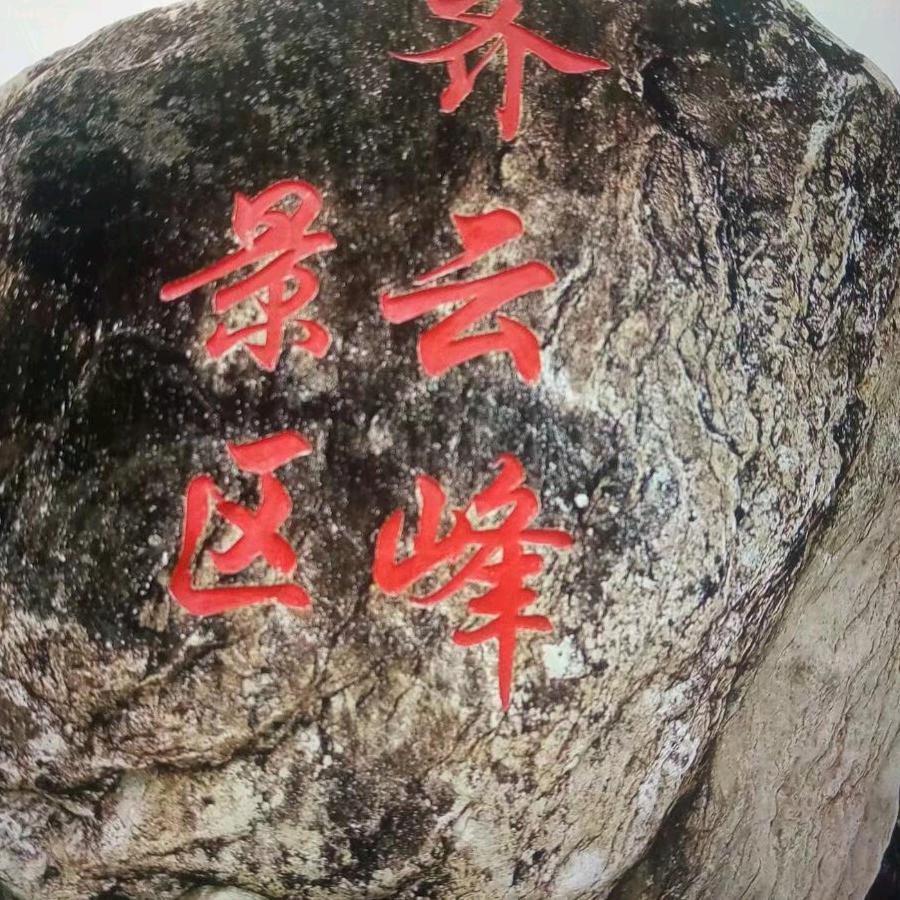 齐云峰
景区